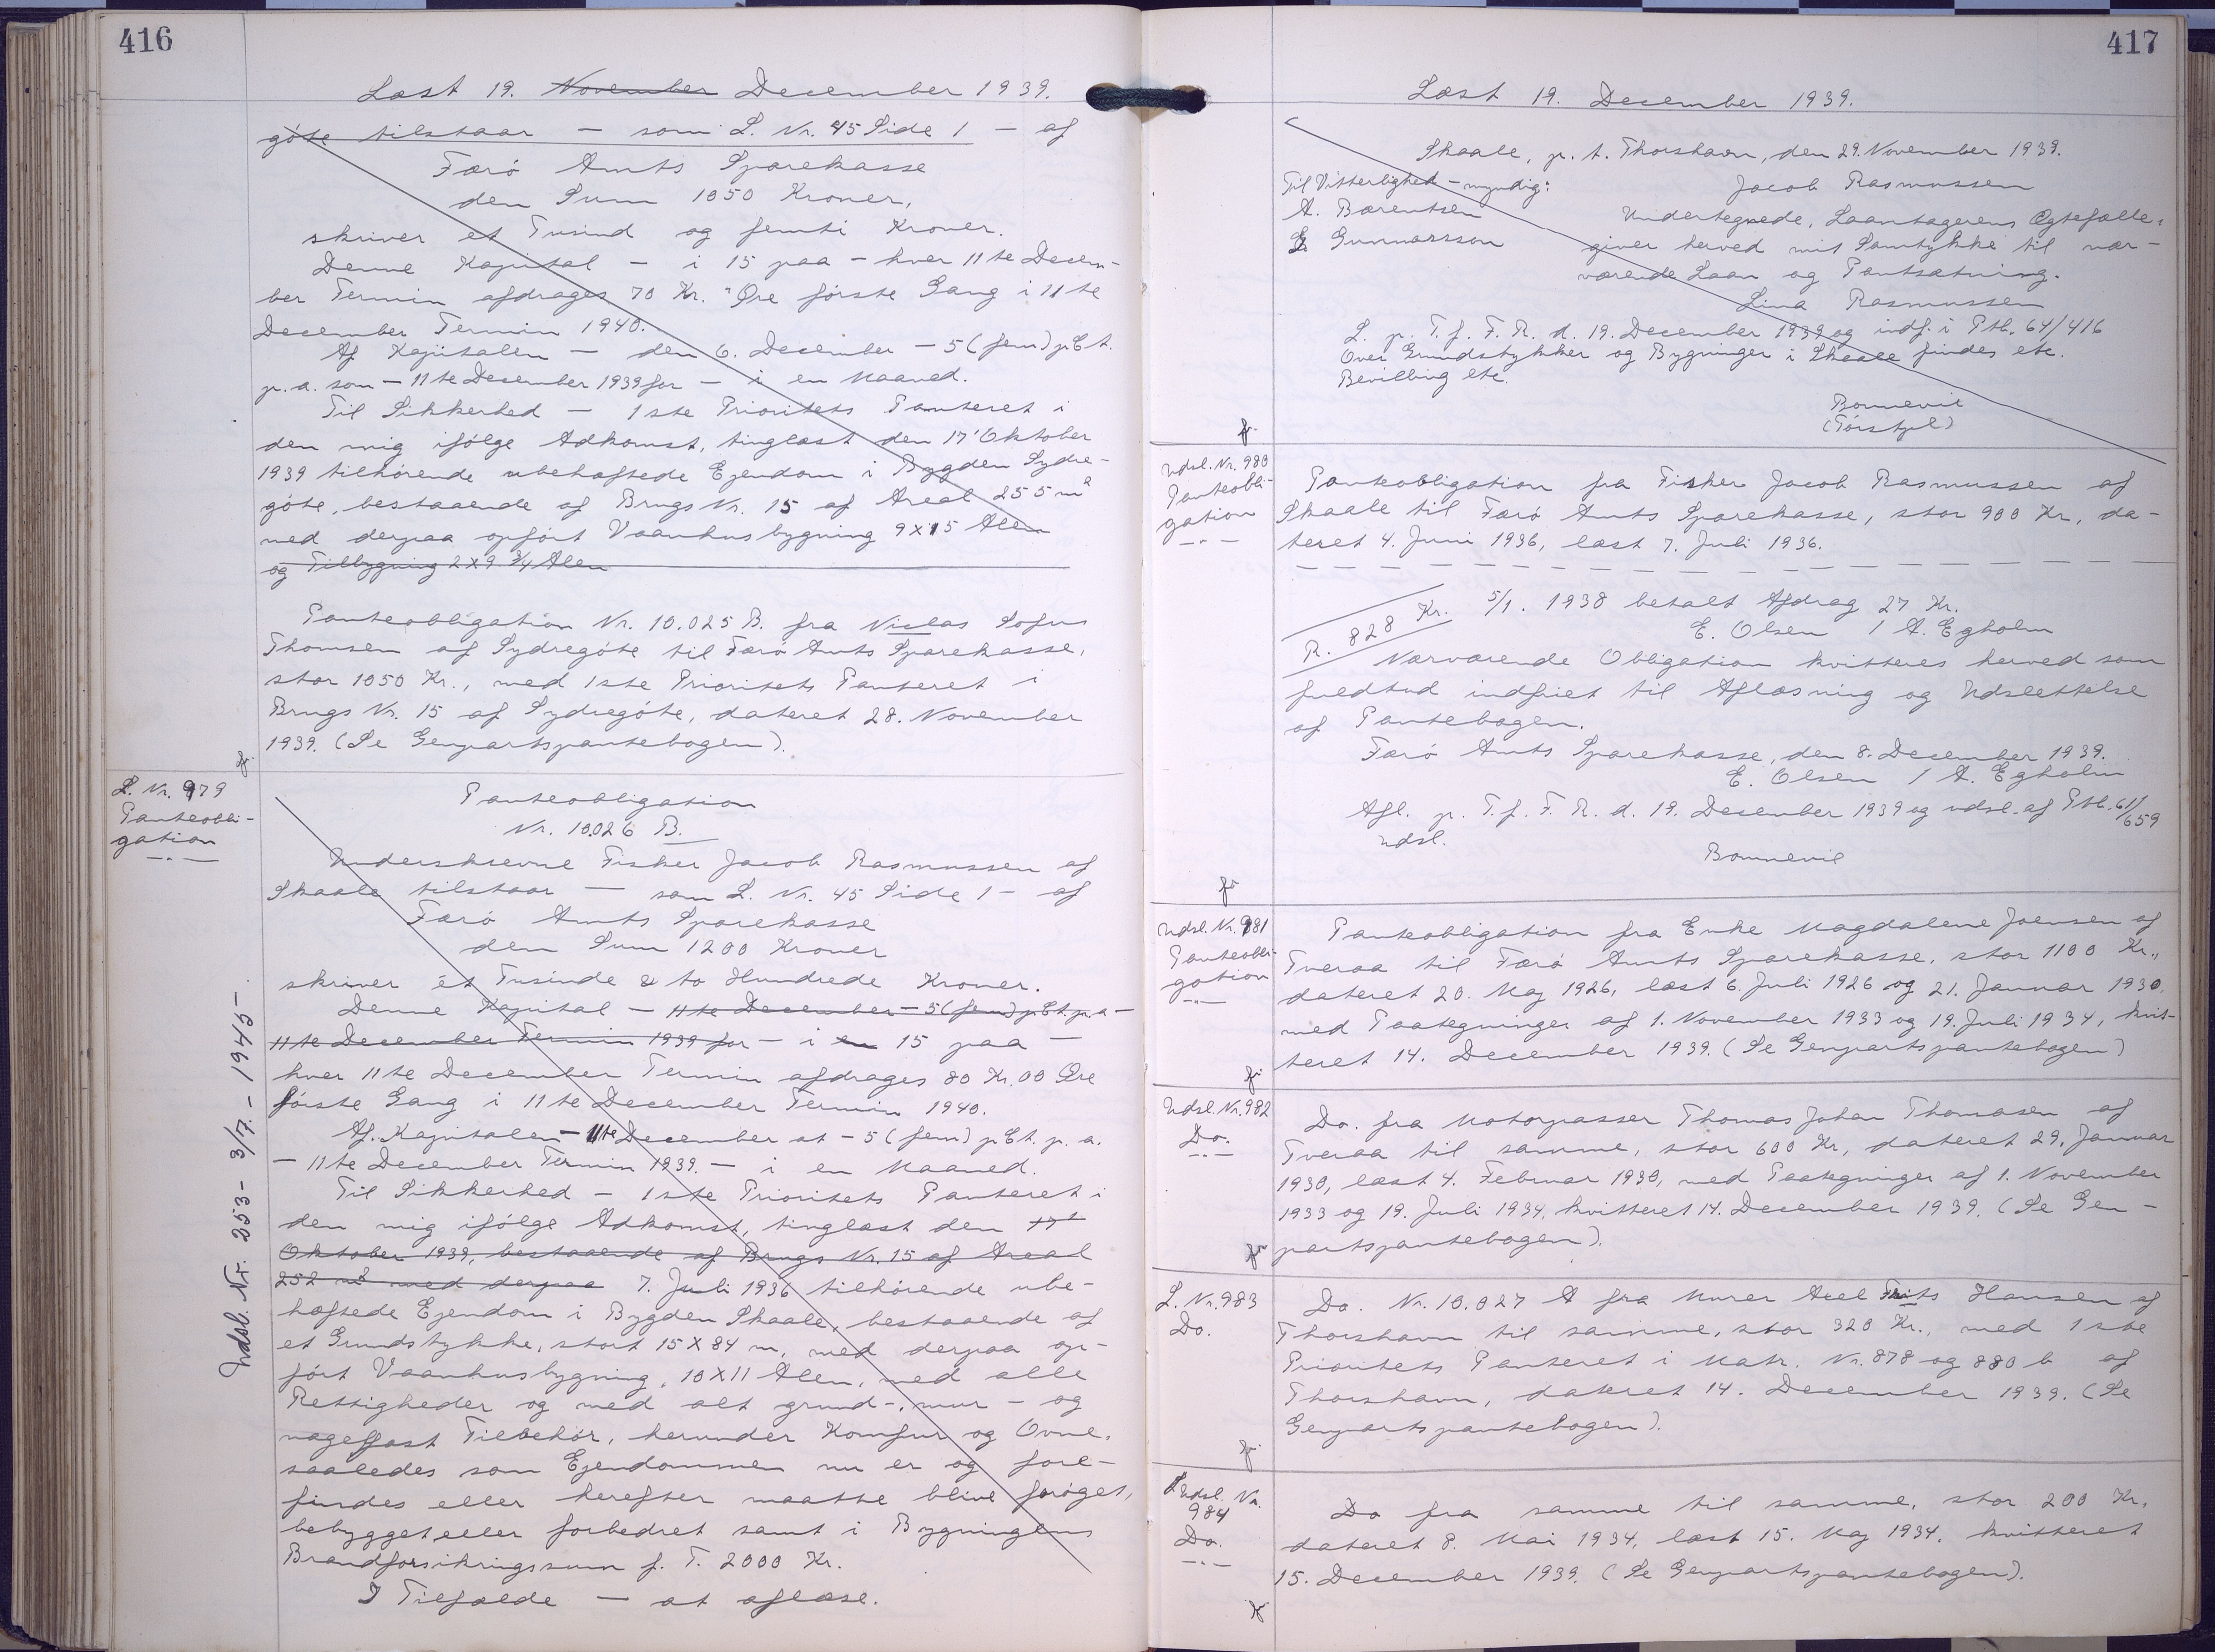 416
Læst 19. November December 1939.
göte tilstaar — som L. Nr. 45 Side 1 — af
Færö Amts Sparekasse
den Sum 1050 Kroner,
skriver et Tusind og femti Kroner.
Denne Kapital — i 15 paa — hver 11te Decem-
ber Termin afdrages 70 Kr. " Øre förste Gang i 11te
December Termin 1940.
Af Kapitalen — den 6. December — 5 (fem) pCt.
p.a. som — 11te December 1939 for — i en Maaned.
Til Sikkerhed — 1ste Prioritets Panteret i
den mig ifölge Adkomst, tinglæst den 17' Oktober
1939 tilhörende ubehæftede Ejendom i Bygden Sydre-
göte, bestaaende af Brugs Nr. 15 af Areal 255 m²
med derpaa opfört Vaanhusbygning 9x15 Alen
og Tilbygning 2x9 3/4 Alen
Panteobligation Nr. 10.025 B. fra Niclas Sofus
Thomsen af Sydregöte til Færö Amts Sparekasse,
stor 1050 Kr., med 1ste Prioritets Panteret i
Brugs Nr. 15 af Sydregöte, dateret 28. November
1939. (Se Genpartspantebogen).
L. Nr. 979
Panteobli-
gation
Panteobligation
Nr. 10.026 B.
Underskrevne Fisker Jacob Rasmussen af
Skaale tilstaar — som L. Nr. 45 Side 1 — af
Færö Amts Sparekasse
den Sum 1200 Kroner
skriver ét Tusinde & to Hundrede Kroner.
Denne Kapital — 11te December — 5 (fem) pCt. p.a —
11te December Termin 1939 for — i en 15 paa —
hver 11te December Termin afdrages 80 Kr. 00 Øre
förste Gang i 11te December Termin 1940.
Af Kapitalen — 11te December at — 5 (fem) pCt. p. a.
— 11te December Termin 1939. — i en Maaned.
Til Sikkerhed — 1ste Prioritets Panteret i
den mig ifölge Adkomst, tinglæst den 17'
Oktober 1939, bestaaende af Brugs Nr. 15 af Areal
252 m² med derpaa 7. Juli 1936 tilhörende ube-
hæftede Ejendom i Bygden Skaale, bestaaende af
et Grundstykke, stort 15 X 84 m, med derpaa op-
fört Vaanhusbygning, 10X11 Alen, med alle
Rettigheder og med alt grund-, mur - og
nagelfast Tilbehör, herunder Komfur og Ovne,
saaledes som Ejendommen nu er og fore-
findes eller herefter maatte blive foröget,
bebygget eller forbedret samt i Bygningens
Brandforsikringssum f. T. 2000 Kr.
I Tilfælde — at aflæse.
Udsl. Nr. 253 - 3/7. - 1945 -
417
Læst 19. December 1939.
Skaale, p. t. Thorshavn, den 29. November 1939.
Til Vitterlighed - myndig:
Jacob Rasmussen
A. Bærentsen
Undertegnede, Laantagerens Ægtefælle,
E. Gunnarsson
giver herved mit Samtykke til nær-
værende Laan og Pantsætning.
Lina Rasmussen
L. p. T. f. F. R. d. 19. December 1939 og indf. i Ptb. 64/416
Over Grundstykker og Bygninger i Skaale findes etc.
Bevilling etc.
Bonnevie
Udsl. Nr. 980
Panteobli-
gation
Panteobligation fra Fisker Jacob Rasmussen af
Skaale til Færö Amts Sparekasse, stor 900 Kr, da-
teret 4. Juni 1936, læst 7. Juli 1936.
R. 828 Kr. 5/1. 1938 betalt Afdrag 27 Kr.
E. Olsen / A. Egholm
Nærværende Obligation kvitteres herved som
fuldtud indfriet til Aflæsning og Udslettelse
af Pantebogen.
Færö Amts Sparekasse, den 8. December 1939.
E. Olsen / A. Egholm
Afl. p. T. f. F. R. d. 19. December 1939 og udsl. af Ptb. 61/659
udsl.
Bonnevie
Udsl. Nr. 981
Panteobli-
gation
Panteobligation fra Enke Magdalene Joensen af
Tveraa til Færö Amts Sparekasse, stor 1100 Kr.,
dateret 20. Maj 1926, læst 6. Juli 1926 og 21. Januar 1930,
med Paategninger af 1. November 1933 og 19. Juli 1934, kvit-
teret 14. December 1939. (Se Genpartspantebogen)
Udsl. Nr. 982
Do.
Do. fra Motorpasser Thomas Johan Thomasen af
Tveraa til samme, stor 600 Kr, dateret 29. Januar
1930, læst 4. Februar 1930, med Paategninger af 1. November
1933 og 19. Juli 1934, kvitteret 14. December 1939. (Se Gen-
partspantebogen).
L. Nr. 983
Do.
Do. Nr. 10.027 A fra Murer Axel Frits Hansen af
Thorshavn til samme, stor 320 Kr., med 1ste
Prioritets Panteret i Matr. Nr. 878 og 880 b af
Thorshavn, dateret 14. December 1939. (Se
Genpartspantebogen).
Udsl. Nr.
984
Do.
Do fra samme til samme, stor 200 Kr,
dateret 8. Mai 1934, læst 15. Maj 1934, kvitteret
15. December 1939. (Se Genpartspantebogen).